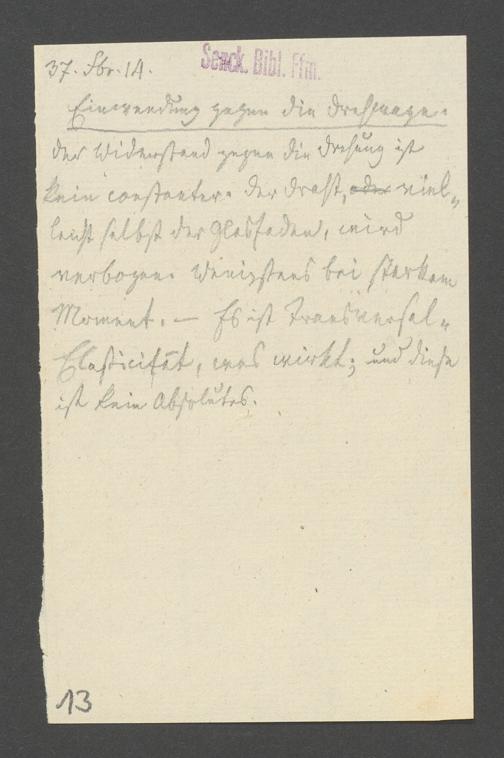 37. Sbr. 1A.
Senck. Bibl. Ffm.
Einwendung gegen die Drehwage.
Der Widerstand gegen die Drehung ist
kein constanter. Der Draht, oder viel-
leicht selbst der Glasfaden, wird
verbogen. Wenigstens bei starkem
Moment. — Es ist Transversal-
Elasticität, was wirkt; und diese
ist kein Absolutes.
13